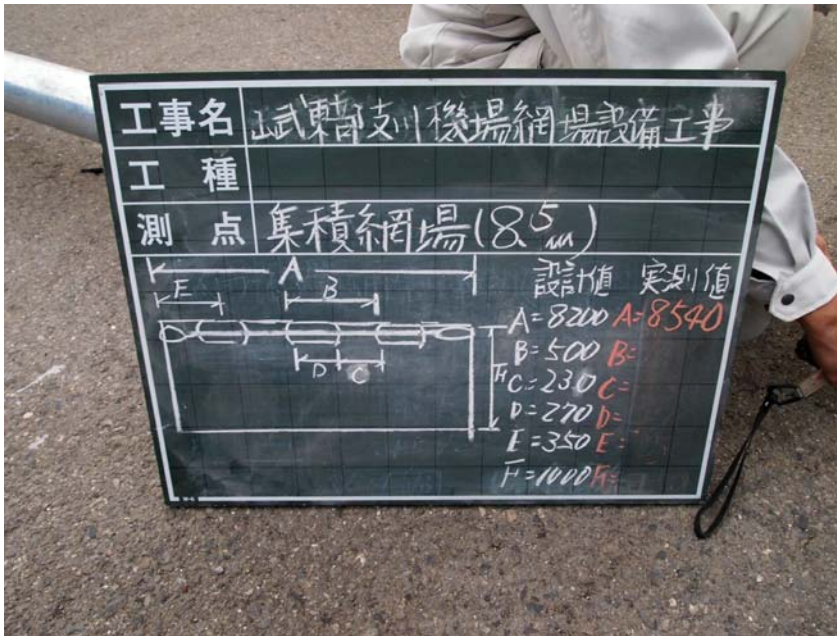 工事名 山武東部支川機場網場設備工事
工種
測点 集積網場(8.5m)
A
E B
D C
F
設計値 実測値
A=8200 A=8540
B=500 B=
C=230 C=
D=270 D=
E=350 E=
F=1000 F=